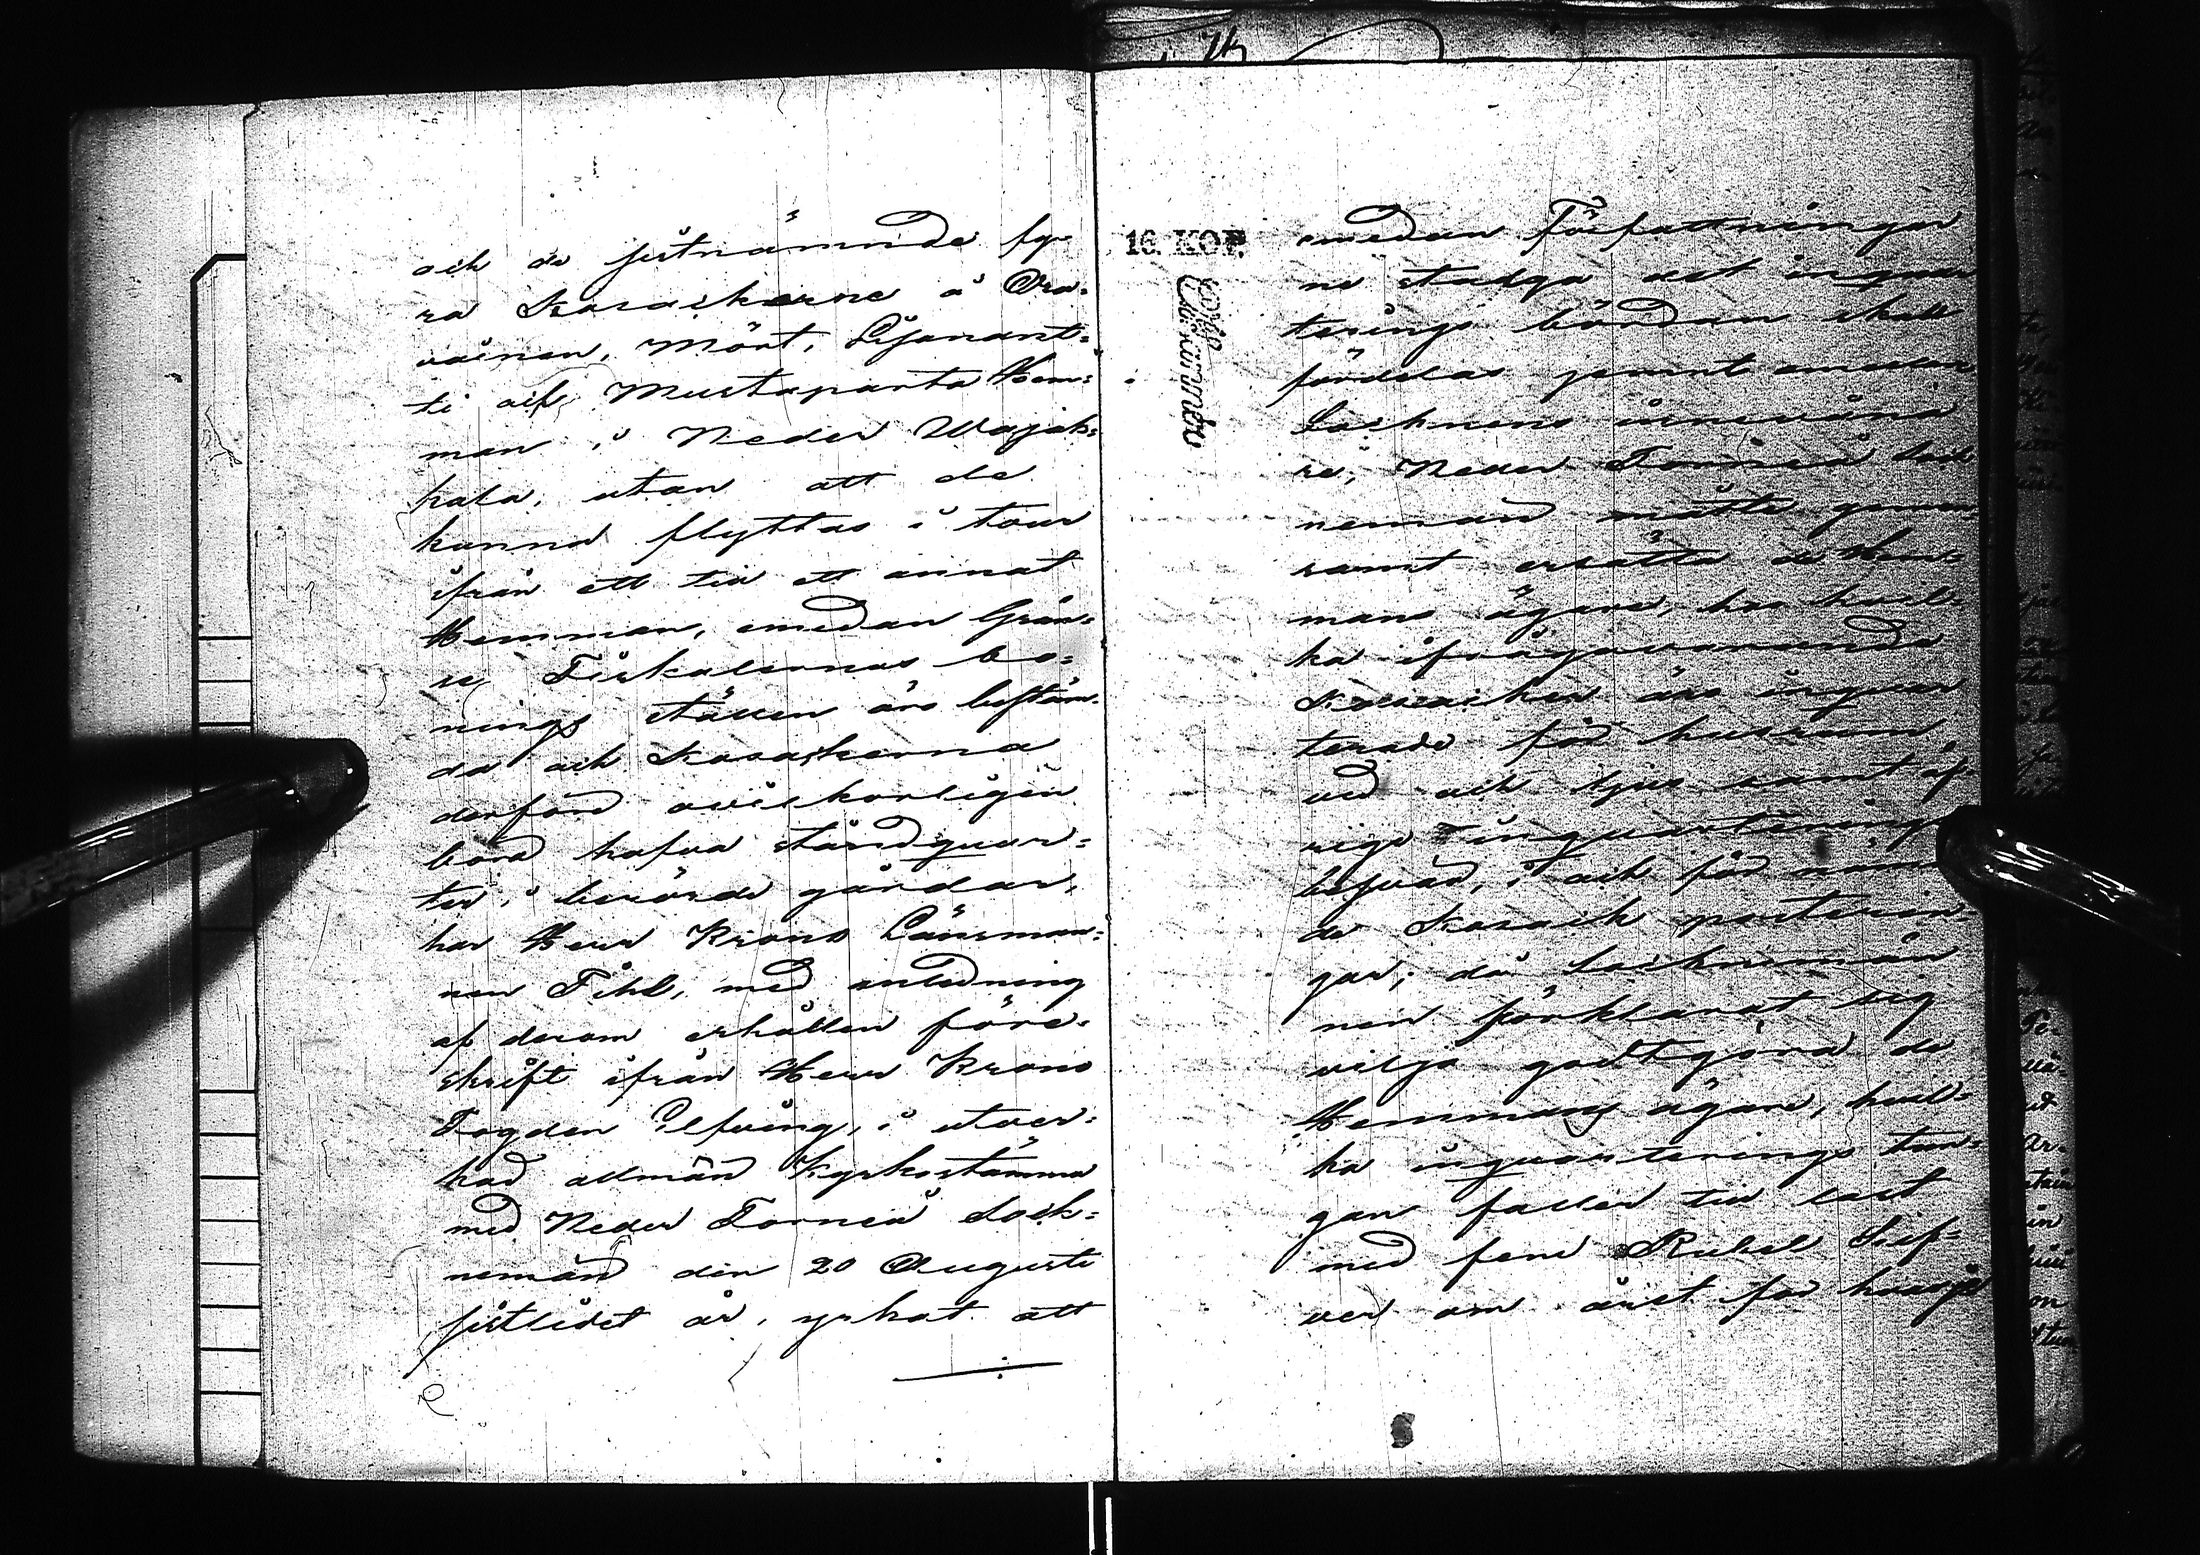 och de sistnämnde fy-
ra Kosackerne å Ora-
vainen, Mört, Lisanant-
ti och Mustaparta Hem-
man i Neder Wojak-
kala, utan att de
kunna flyttas i tour
ifrån ett till ett annat
Hemman, emedan Grän-
se Fiskalernas bo-
nings ställen äro bestäm-
da och Kosackerna
derföre oviskorligen
bord hafva ståndquar-
ter i berörde gårdar,
har Herr Krono Länsman-
nen Fihl, med anledning
af derom erhållen före-
skrift ifrån Herr Krono
Fogden Elfving, i utver-
kad allmän Kyrkostämma
med Neder Torneå Sock-
nemän den 20 Augusti
sistledet år, yrkat att
16. KOP.
emedan Författningar
ne stadga att inquar
terings bördan skall
fördelas jemnt emellan
Socknens innevåna
re, Neder Torneå Sock
nemän måtte gemen-
samt ersätta de Hem-
mans ägare, hos hvil-
ka ifrågavarande
Kosacker äro inquar
terade för husrum
ved och ljus samt öf-
rigt inquarterings
besvär, i och för nämn
de Kosack posterin-
gar, då Socknemän
nen förklarat sig
vilja godtgöra de
Hemmans ägare, hvil-
ka inquarterings tun-
gan faller till last
med fem Rubel Silf-
ver om året för hvarje